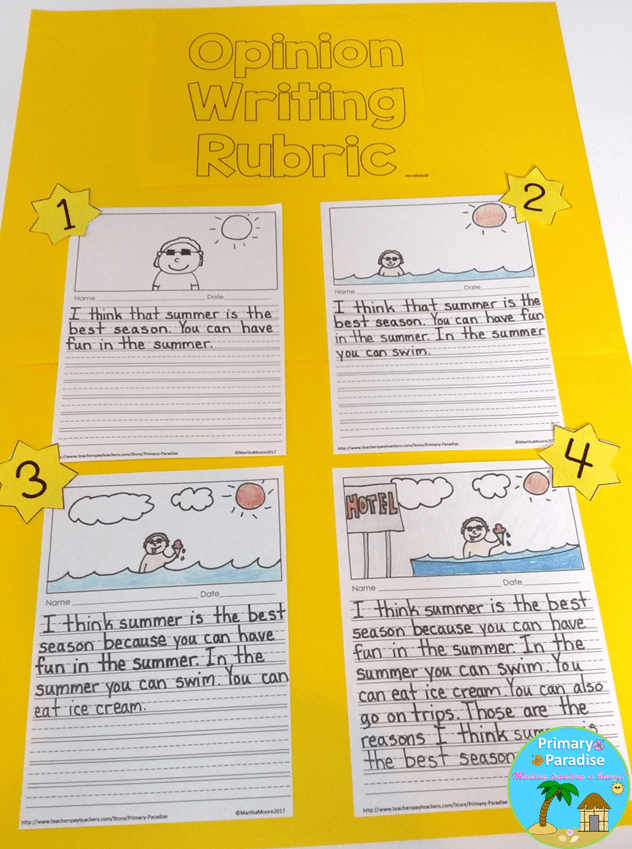 Opinion
Writing
Rubric
1
Name
Date
I think that summer is the
best season. You can have
fun in the summer.
http://www.teacherspayteachers.com/Store/Primary-Paradise
©MarthaMoore2017
2
Name
Date
I think that summer is the
best season. You can have fun
in the summer. In the summer
you can swim.
http://www.teacherspayteachers.com/Store/Primary-Paradise
©MarthaMoore2017
3
Name
Date
I think summer is the best
season because you can have
fun in the summer. In the
summer you can swim. You can
eat ice cream.
http://www.teacherspayteachers.com/Store/Primary-Paradise
©MarthaMoore2017
4
HOTEL
Name
Date
I think summer is the best
season because you can have
fun in the summer. In the
summer you can swim. You
can eat ice cream. You can also
go on trips. Those are the
reasons I think is
the best season
http://www.teacherspayteachers.com/Store/Primary-Paradise
Primary
Paradise
Making teaching a breeze!